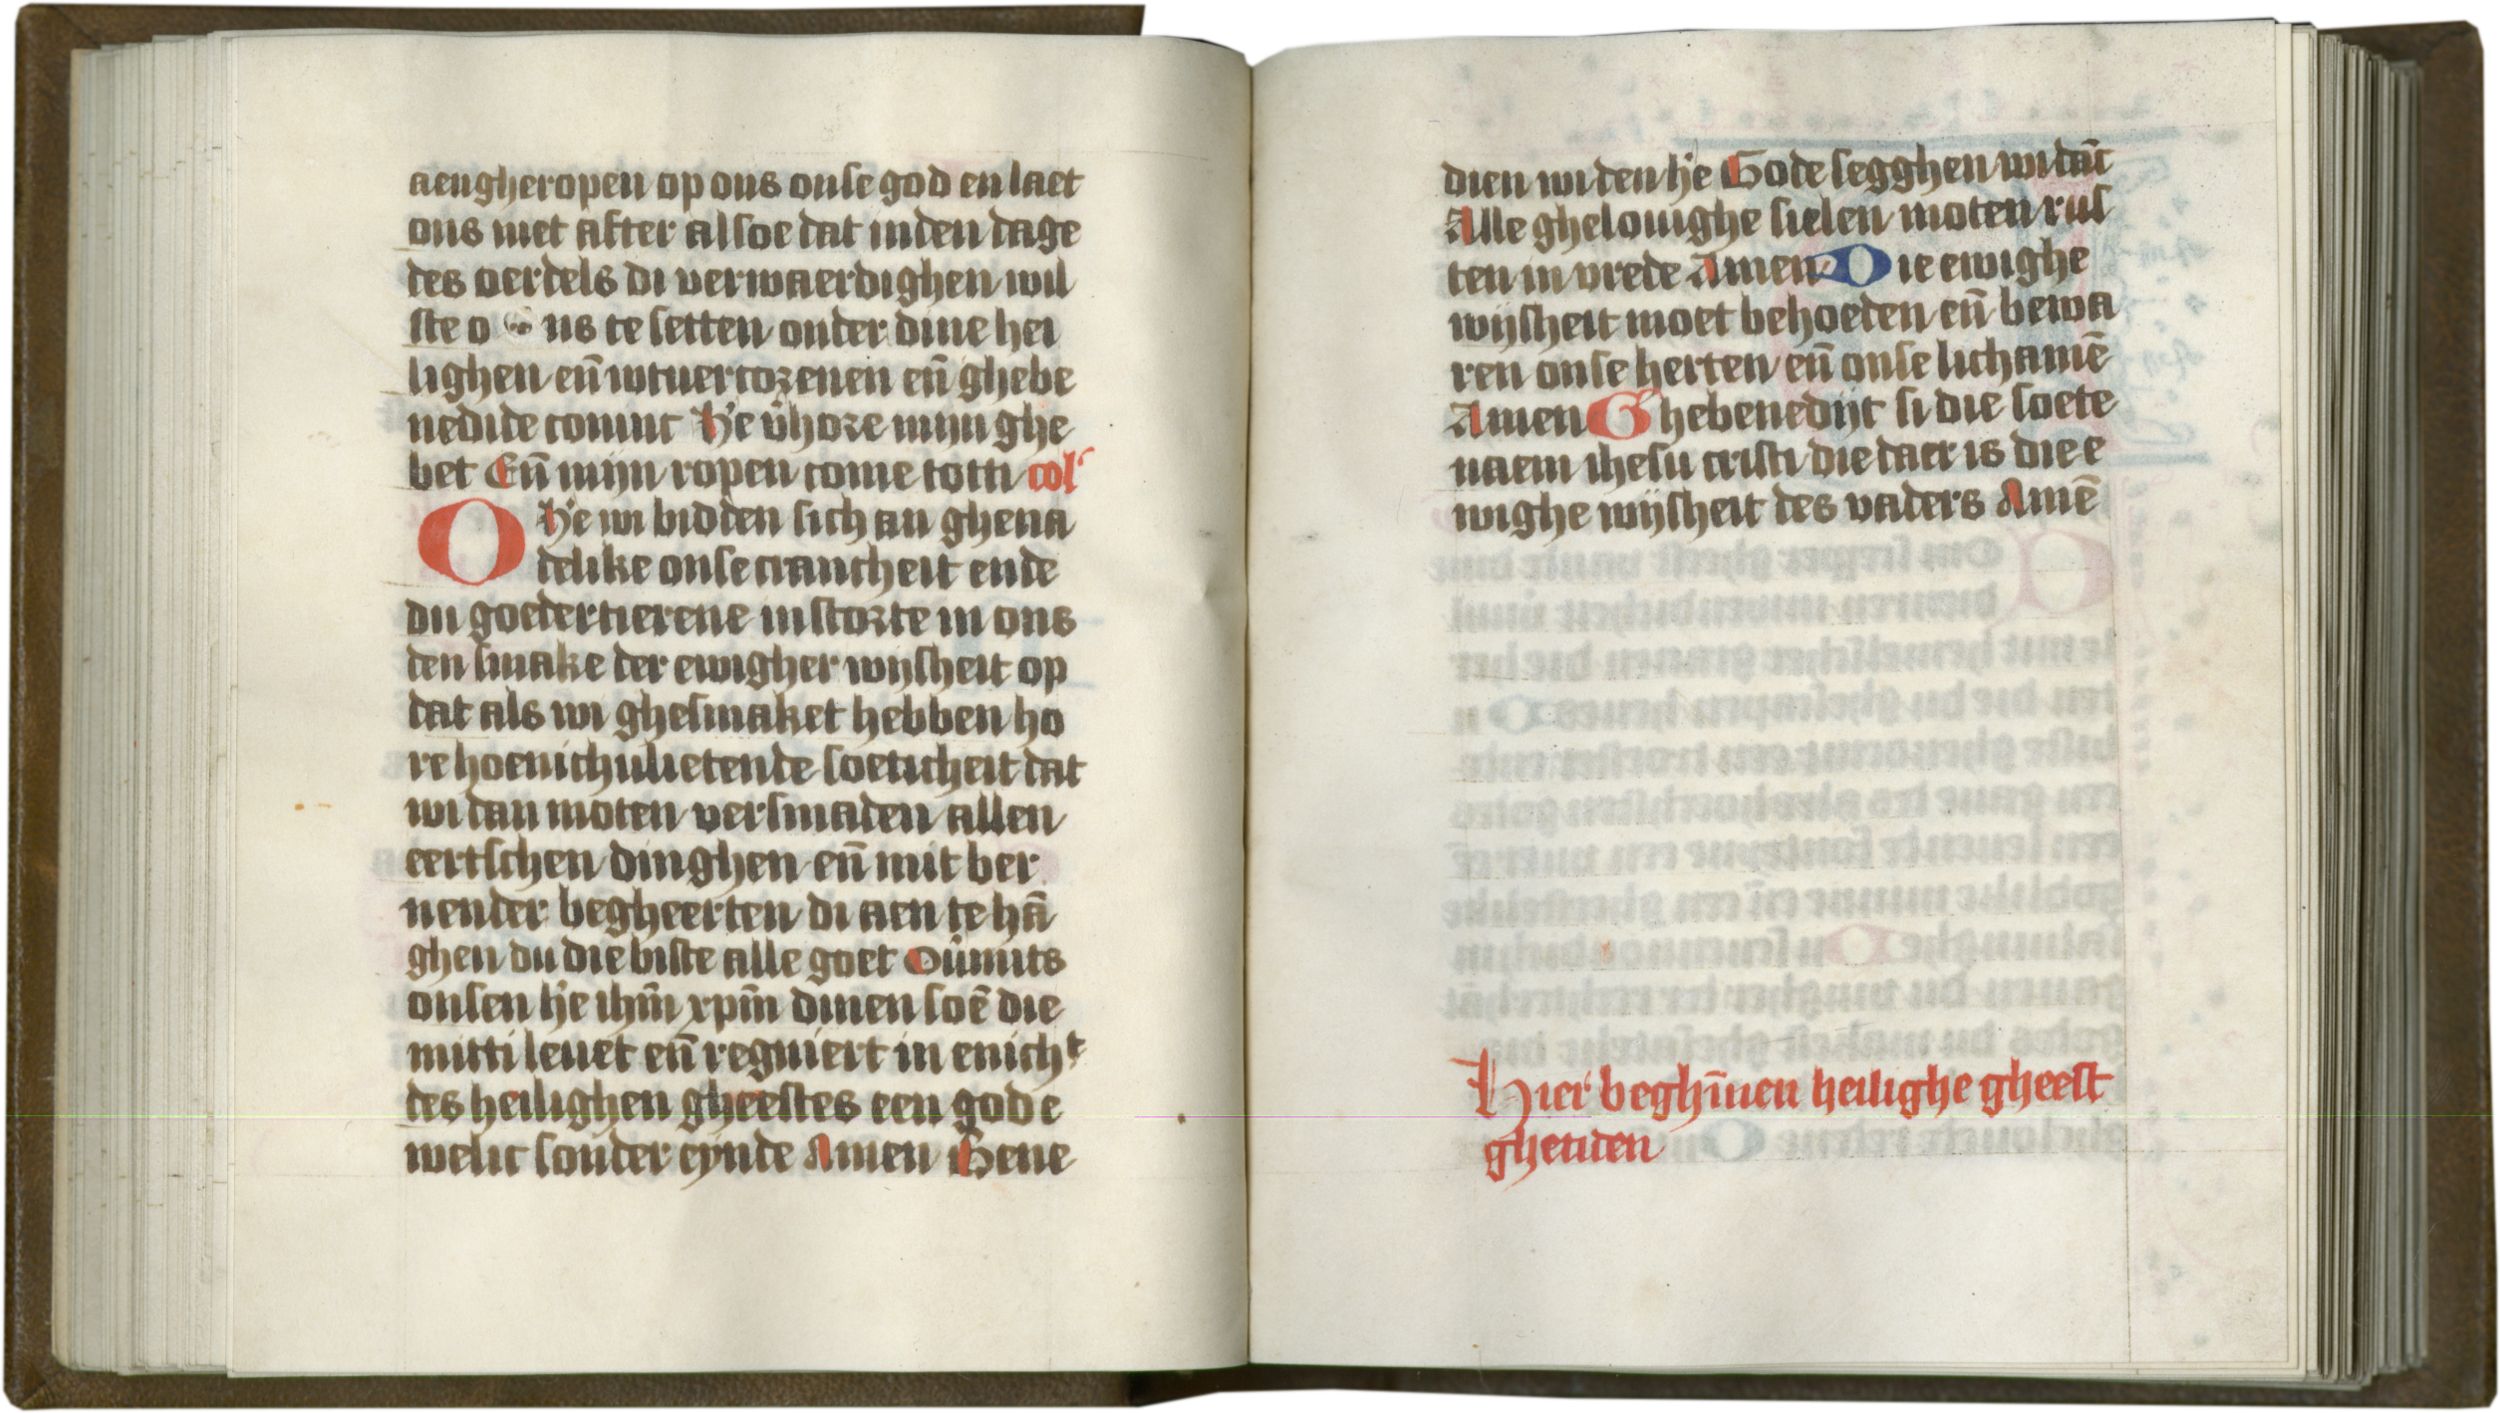 aengheropen op ons onse god en laet
ons niet after alsoe dat in den dage
des oerdels di verwaerdighen wil
ste o ns te setten onder dine hei
lighen eñ wtuercozenen eñ ghebe
nedide coninc He v̄hoze mijn ghe
bet Eñ mijn ropen come totti col'
O He wi bidden sich an ghena
delike onse crancheit ende
du goedertierene instozte in ons
den smake der ewigher wijsheit op
dat als wi ghesmaket hebben ho
re hoenichvlietende soeticheit dat
wi dan moten versmaden allen
eertschen dinghen eñ mit ber
nender begheerten di aen te hā
ghen du die biste alle goet Ov̄mits
onsen h'e ihm̄ xpm̄ dinen soē die
mitti leuet eñ regniert in enicht
des heilighen gheestes een god e
welic sonder eynde Amen Bene
dien wi den h'e Gode segghen wi dāc
Alle ghelouighe sielen moten rus
ten in vrede Amen Die ewighe
wijsheit moet behoeden eñ bewa
ren onse herten eñ onse lichamē
Amen Ghebenedijt si die soete
naem ihesu cristi die daer is die e
wighe wijsheit des vaders Amē
Hier beghīnen heilighe gheest
ghetiden